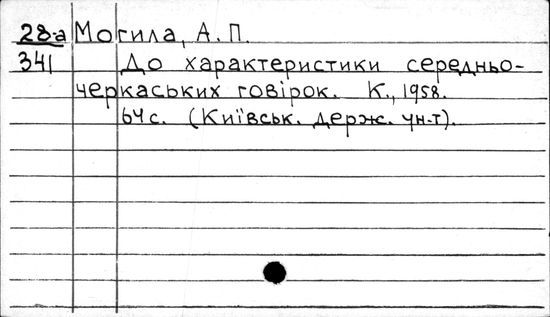 28-а Могила, А. П.
341 До характеристики середньо-
черкаських говірок. К., 1958.
64 с. (Київськ. держ. ун-т).